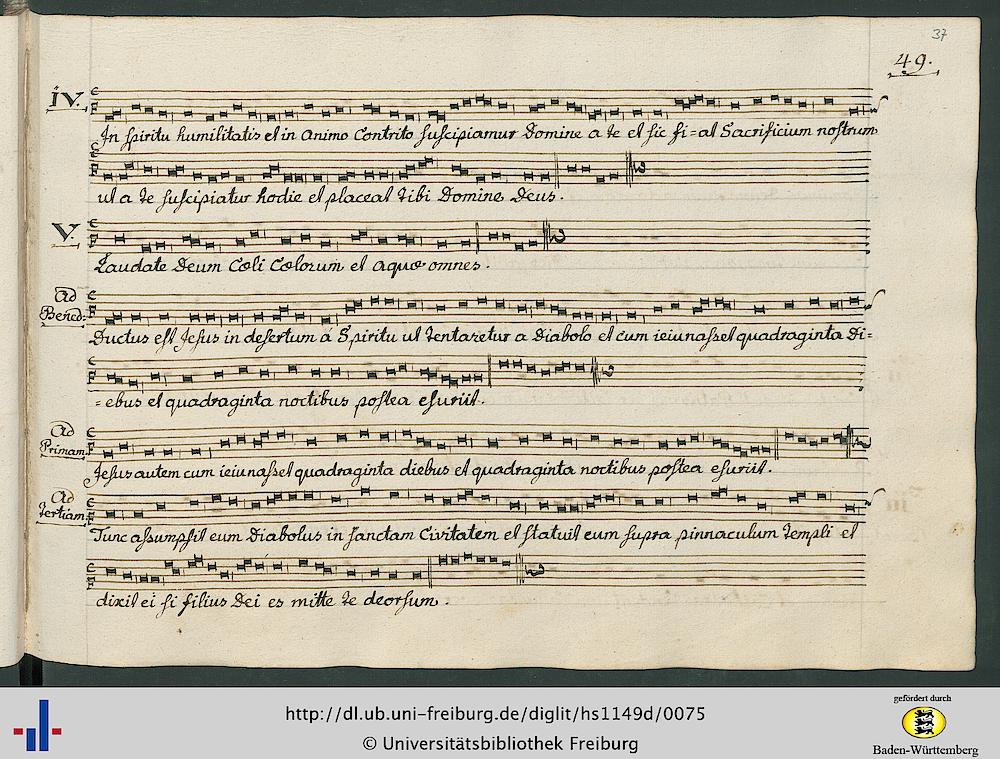 37
49.
IV.
In spiritu humilitatis et in animo Contrito suscipiamur Domine a te et sic fi=at Sacrificium nostrum
ut a te suscipiatur hodie et placeat tibi Domine Deus.
V.
Laudate Deum Cœli Cœlorum et aquæ omnes.
Ad Bened:
Ductus est Jesus in desertum á Spiritu ut tentaretur a Diabolo et cum ieiunasset quadraginta Di=
=ebus et quadraginta noctibus postea esuriit.
Ad Primam
Jesus autem cum ieiunasset quadraginta diebus et quadraginta noctibus postea esuriit.
Ad Tertiam
Tunc assumpsit eum Diabolus in sanctam Civitatem et statuit eum supra pinnaculum templi et
dixit ei si filius Dei es mitte te deorsum.
http://dl.ub.uni-freiburg.de/diglit/hs1149d/0075
© Universitätsbibliothek Freiburg
gefördert durch
Baden-Württemberg